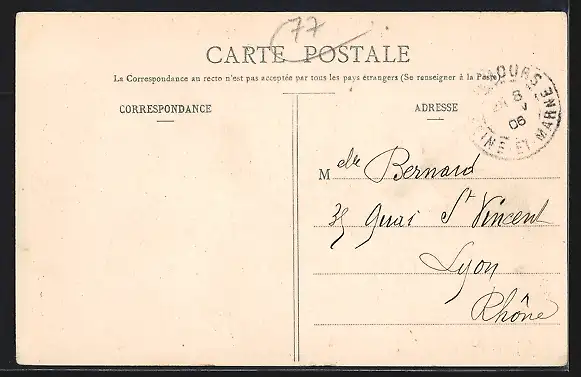 77
CARTE POSTALE
La Correspondance au recto n'est pas acceptée par tous les pays étrangers (Se renseigner à la Poste)
CORRESPONDANCE
ADRESSE
8
06
SEINE-ET-MARNE
Melle Bernard
35 Quai St Vincent
Lyon
Rhône